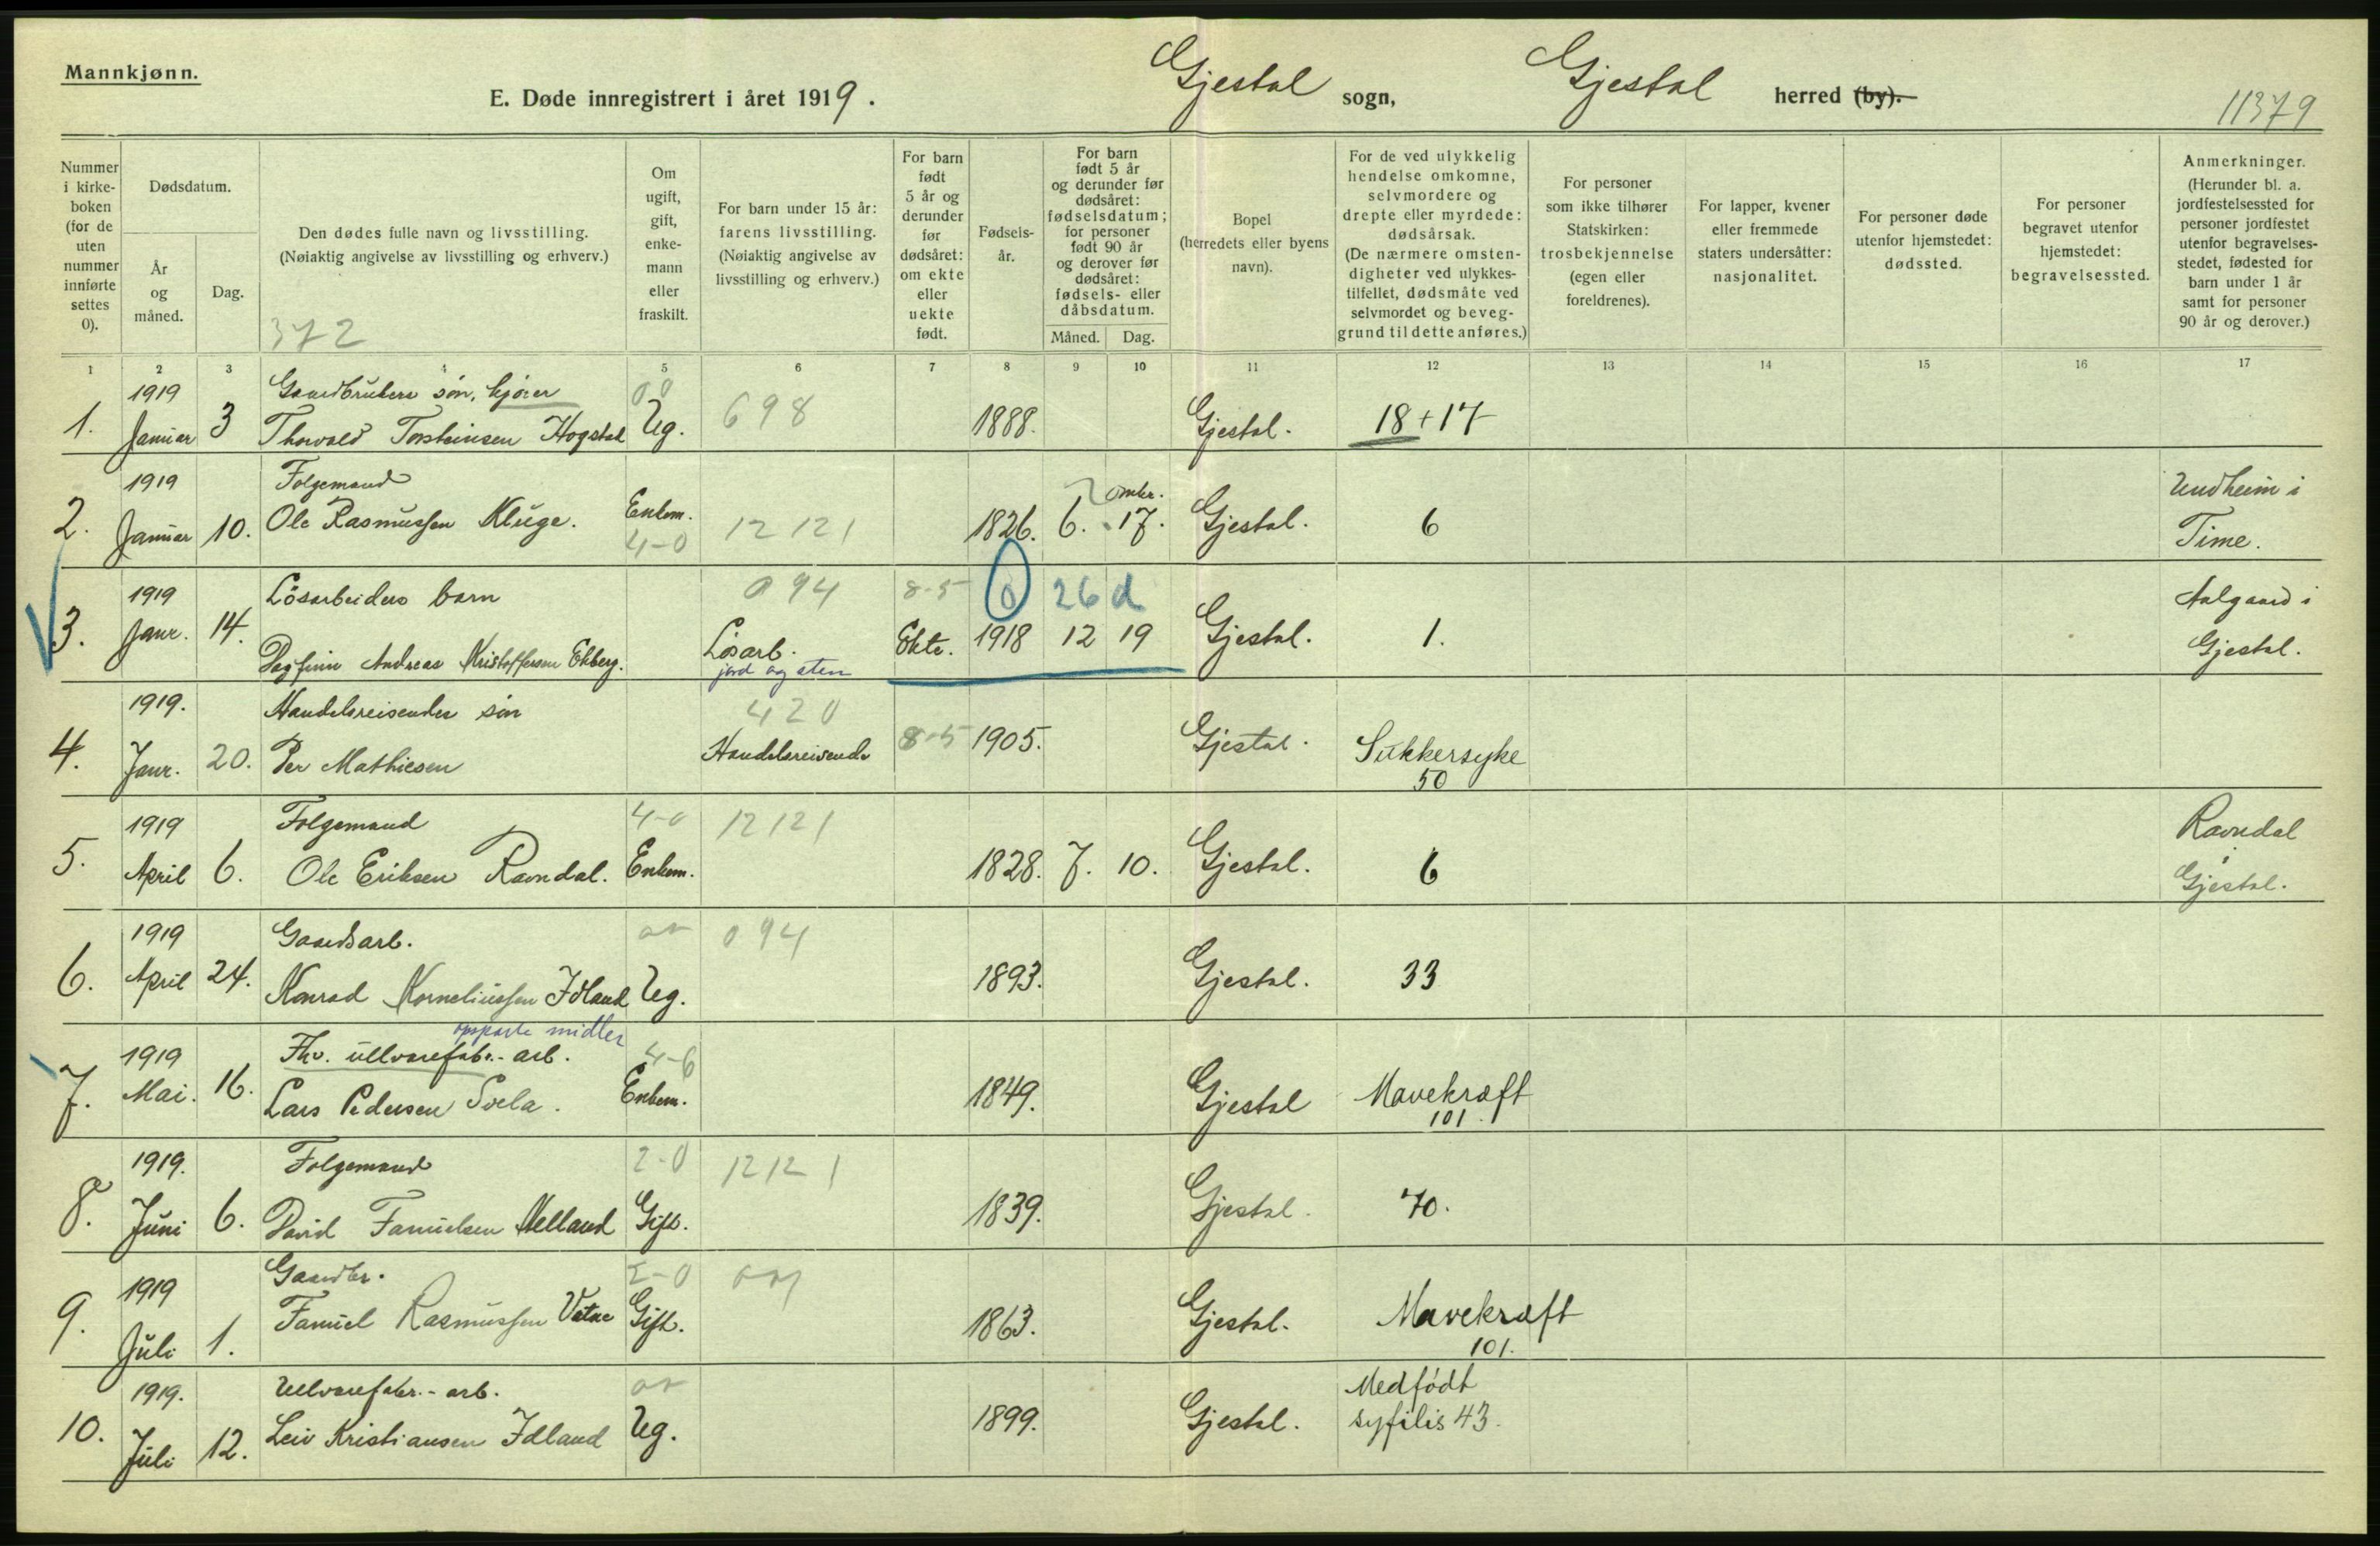 Mannkjønn.
E. Døde innregistrert i året 1919. Gjestal sogn, Gjestal herred (by).
11379
Nummer i kirkeboken (for de uten nummer innførte settes 0).
Dødsdatum.
År og måned.
Dag.
Den dødes fulle navn og livsstilling. (Nøiaktig angivelse av livsstilling og erhverv.)
372
Om ugift, gift, enkemann eller fraskilt.
For barn under 15 år: farens livsstilling. (Nøiaktig angivelse av livsstilling og erhverv.)
For barn født 5 år og derunder før dødsåret: om ekte eller uekte født.
Fødselsår.
For barn født 5 år og derunder før dødsåret: fødselsdatum; for personer født 90 år og derover før dødsåret: fødsels- eller dåbsdatum.
Måned. Dag.
Bopel (herredets eller byens navn).
For de ved ulykkelig hendelse omkomne, selvmordere og drepte eller myrdede: dødsårsak. (De nærmere omstendigheter ved ulykkestilfellet, dødsmåte ved selvmordet og beveggrund til dette anføres.)
For personer som ikke tilhører Statskirken: trosbekjennelse (egen eller foreldrenes).
For lapper, kvener eller fremmede staters undersåtter: nasjonalitet.
For personer døde utenfor hjemstedet: dødssted.
For personer begravet utenfor hjemstedet: begravelsessted.
Anmerkninger. (Herunder bl. a. jordfestelsessted for personer jordfestet utenfor begravelsesstedet, fødested for barn under 1 år samt for personer 90 år og derover.)
1 2 3 4 5 6 7 8 9 10 11 12 13 14 15 16 17
1919 Gaardbrukers søn, kjører
1. Januar 3 Thorvald Torsteinsen Hogstad Ug. 698 1888. Gjestal. 18+17
1919 Folgemand
2. Januar 10. Ole Rasmussen Kluge. Enkem. 4-0 12121 1826. 6. 17. Gjestal. 6 Undheim i Time.
1919 Lösarbeiders barn 094 8-5 0 26 d
3. Janr. 14. Dagfinn Andreas Kristoffersen Ekberg. Lösarb. jord og sten Ekte. 1918 12 19 Gjestal. 1. Aalgaard i Gjestal.
1919. Handelsreisendes sön 420
4. Janr. 20. Per Mathiesen Handelsreisende 8-5 1905. Gjestal. Sukkersyke 50
1919 Folgemand 4-0 12121
5. April 6. Ole Eriksen Ravndal. Enkem. 1828. 7. 10. Gjestal. 6 Ravndal i Gjestal.
1919 Gaardsarb. 094
6. April 24. Konrad Korneliussen Idland Ug. 1893. Gjestal. 33
opsparte midler
1919 Fhv. ullvarefabr.-arb. 4-6
7. Mai. 16. Lars Pedersen Svela. Enkem. 1849. Gjestal Mavekræft 101.
1919. Folgemand 2-0 12121
8. Juni 6. David Samuelsen Melland Gift. 1839. Gjestal. 70.
1919 Gaardbr. 2-0
9. Juli 1. Samuel Rasmussen Vatne Gift. 1863. Gjestal. Mavekræft 101.
1919. Ullvarefabr.-arb.
10. Juli 12. Leiv Kristiansen Idland Ug. 1899. Gjestal. Medfödt syfilis 43.